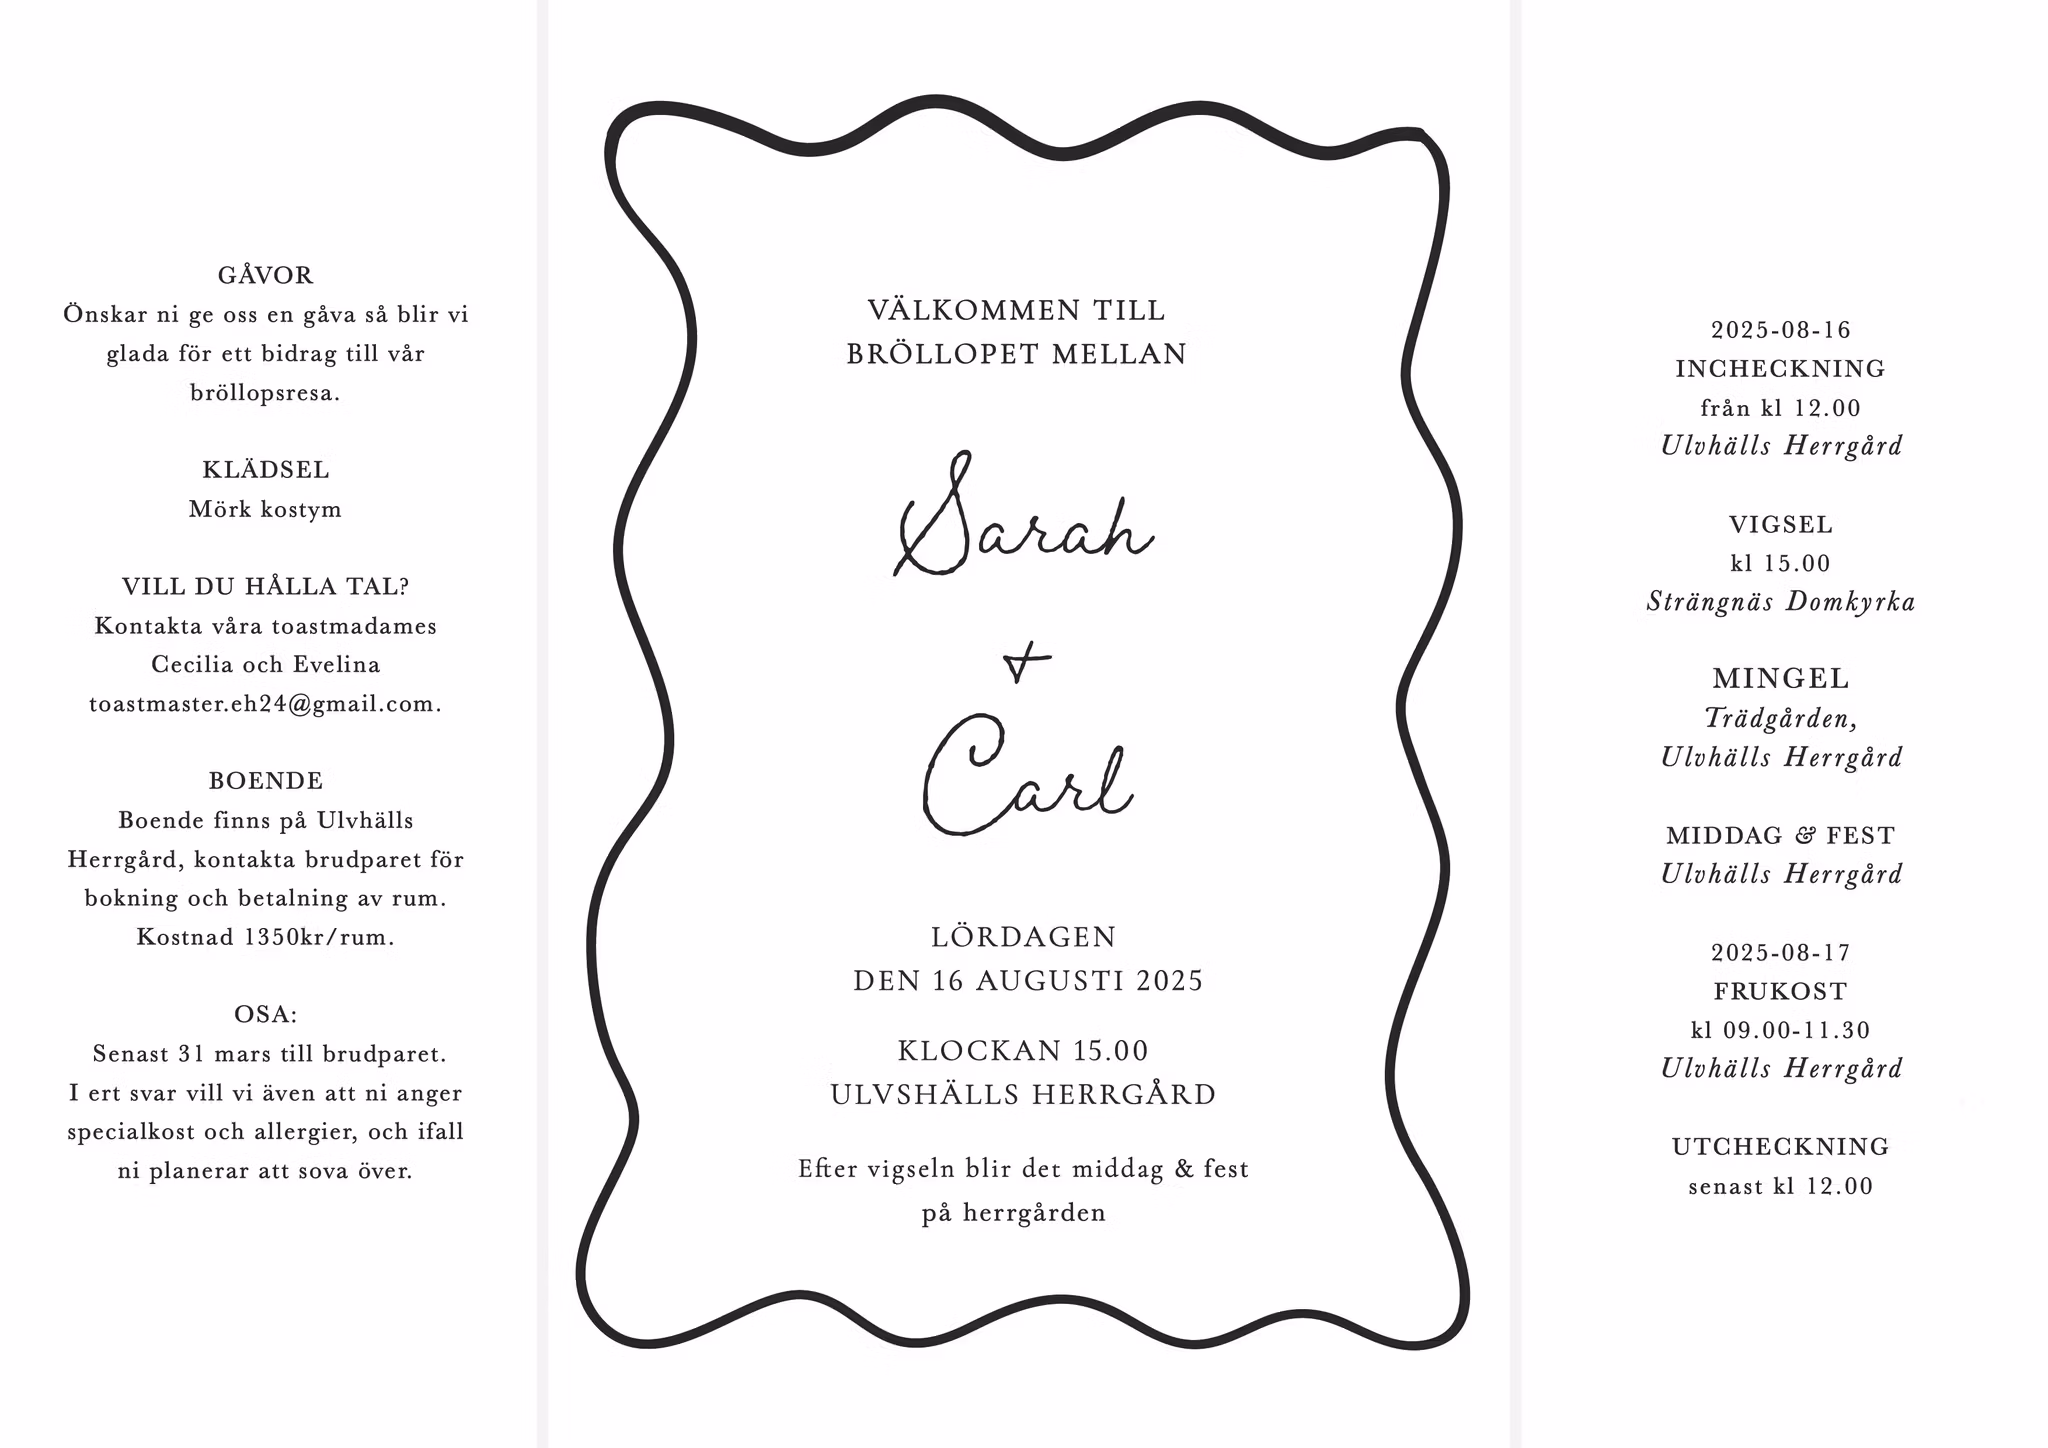 GÅVOR
Önskar ni ge oss en gåva så blir vi
glada för ett bidrag till vår
bröllopsresa.
KLÄDSEL
Mörk kostym
VILL DU HÅLLA TAL?
Kontakta våra toastmadames
Cecilia och Evelina
toastmaster.eh24@gmail.com.
BOENDE
Boende finns på Ulvhälls
Herrgård, kontakta brudparet för
bokning och betalning av rum.
Kostnad 1350kr/rum.
OSA:
Senast 31 mars till brudparet.
I ert svar vill vi även att ni anger
specialkost och allergier, och ifall
ni planerar att sova över.
VÄLKOMMEN TILL
BRÖLLOPET MELLAN
Sarah
+
Carl
LÖRDAGEN
DEN 16 AUGUSTI 2025
KLOCKAN 15.00
ULVSHÄLLS HERRGÅRD
Efter vigseln blir det middag & fest
på herrgården
2025-08-16
INCHECKNING
från kl 12.00
Ulvhälls Herrgård
VIGSEL
kl 15.00
Strängnäs Domkyrka
MINGEL
Trädgården,
Ulvhälls Herrgård
MIDDAG & FEST
Ulvhälls Herrgård
2025-08-17
FRUKOST
kl 09.00-11.30
Ulvhälls Herrgård
UTCHECKNING
senast kl 12.00